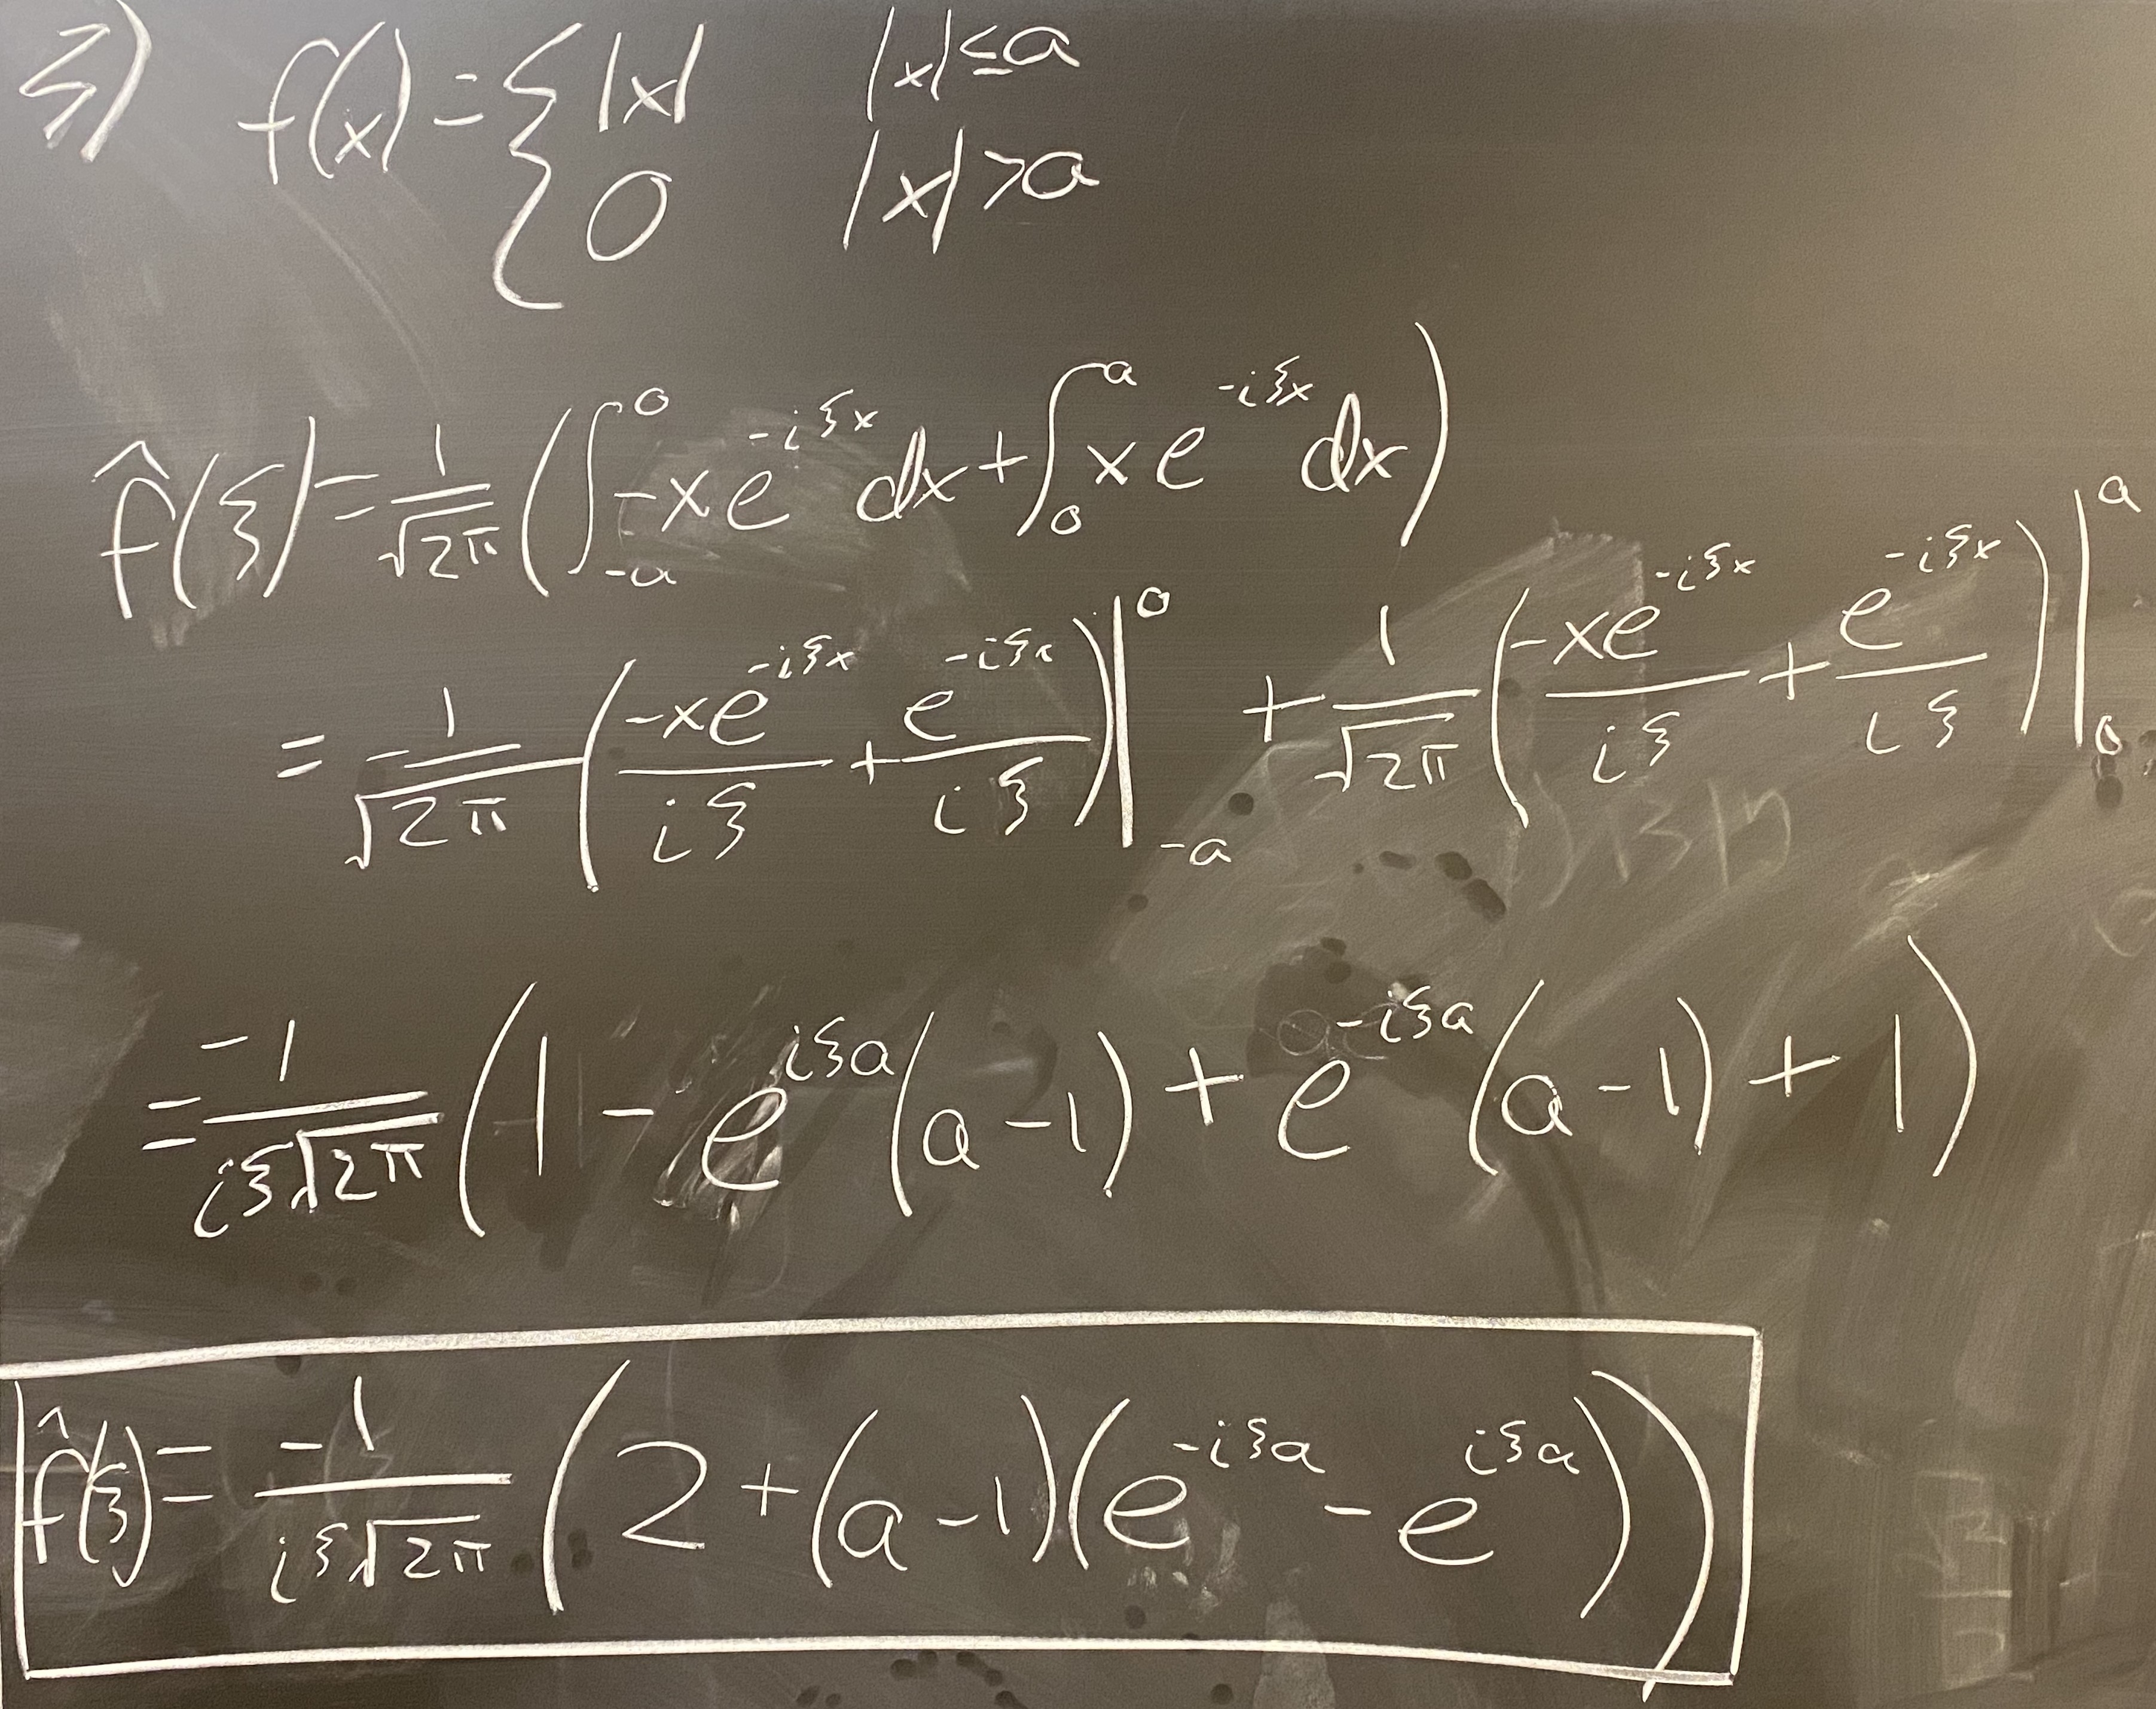 3) f(x) = { |x| |x| ≤ a
0 |x| > a
f̂(ξ) = 1/√2π ( ∫_{-a}^{0} -xe^{-iξx} dx + ∫_{0}^{a} xe^{-iξx} dx )
= -1/√2π ( -xe^{-iξx}/iξ + e^{-iξx}/iξ ) |_{-a}^{0} + 1/√2π ( -xe^{-iξx}/iξ + e^{-iξx}/iξ ) |_{0}^{a}
= -1/iξ√2π ( 1 - e^{iξa}(a-1) + e^{-iξa}(a-1) + 1 )
f̂(ξ) = -1/iξ√2π ( 2 + (a-1)(e^{-iξa} - e^{iξa}) )